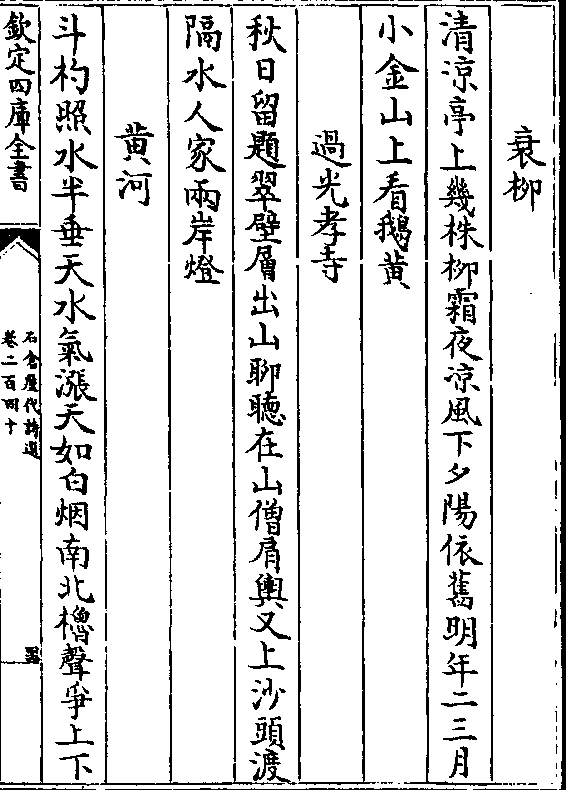 衰柳
清涼亭上幾株柳霜夜凉風下夕陽依舊明年二三月
小金山上看鵝黄
過光孝寺
秋日留題翠壁層出山聊聽在山僧肩輿又上沙頭渡
隔水人家兩岸燈
黄河
斗杓照水半垂天水氣漲天如白烟南北櫓聲爭上下
欽定四庫全書
石倉歷代詩選
卷二百四十